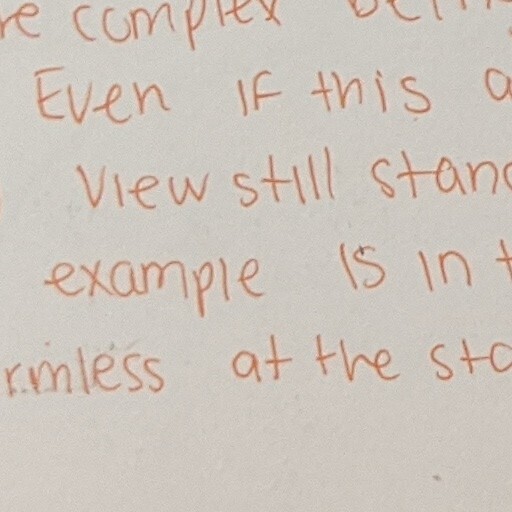 re complex
Even if this a
view still stand
example is in t
rmless at the sta